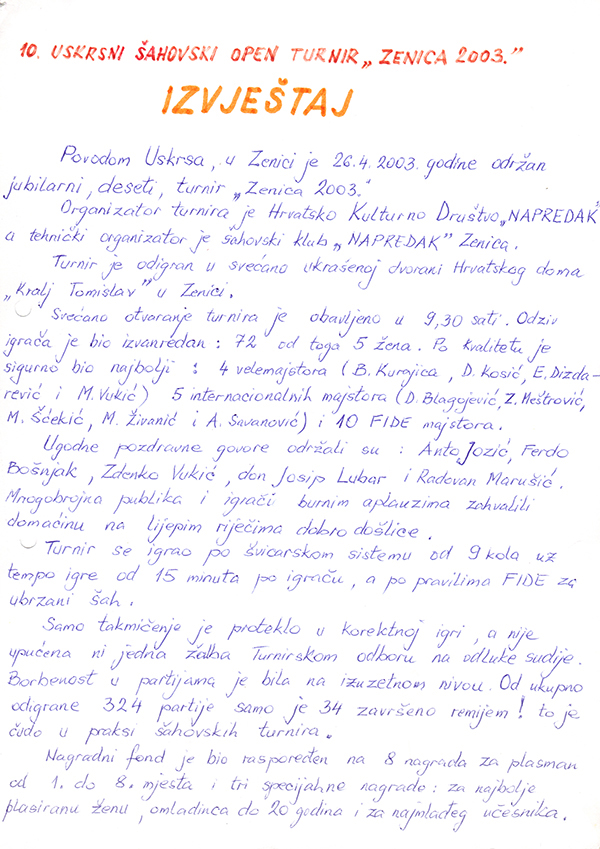 10. USKRSNI ŠAHOVSKI OPEN TURNIR „ZENICA 2003."
IZVJEŠTAJ
Povodom Uskrsa, u Zenici je 26.4.2003. godine održan
jubilarni, deseti, turnir „Zenica 2003."
Organizator turnira je Hrvatsko Kulturno Društvo „NAPREDAK"
a tehnički organizator je šahovski klub „NAPREDAK" Zenica.
Turnir je odigran u svečano ukrašenoj dvorani Hrvatskog doma
„Kralj Tomislav" u Zenici.
Svečano otvaranje turnira je obavljeno u 9,30 sati. Odziv
igrača je bio izvanredan : 72 od toga 5 žena. Po kvalitetu je
sigurno bio najbolji : 4 velemajstora (B. Kurajica, D. Kosić, E. Dizda-
rević i M. Vukić) 5 internacionalnih majstora (D. Blagojević, Z. Meštrović,
M. Šćekić, M. Živanić i A. Savanović) i 10 FIDE majstora.
Ugodne pozdravne govore održali su : Anto Jozić, Ferdo
Bošnjak, Zdenko Vukić, don Josip Lubar i Radovan Marušić.
Mnogobrojna publika i igrači burnim aplauzima zahvalili
domaćinu na lijepim riječima dobro došlice.
Turnir se igrao po švicarskom sistemu od 9 kola uz
tempo igre od 15 minuta po igraču, a po pravilima FIDE za
ubrzani šah.
Samo takmičenje je proteklo u korektnoj igri, a nije
upućena ni jedna žalba Turnirskom odboru na odluke sudije.
Borbenost u partijama je bila na izuzetnom nivou. Od ukupno
odigrane 324 partije samo je 34 završeno remijem! to je
čudo u praksi šahovskih turnira.
Nagradni fond je bio raspoređen na 8 nagrada za plasman
od 1. do 8. mjesta i tri specijalne nagrade: za najbolje
plasiranu ženu, omladinca do 20 godina i za najmlađeg učesnika.